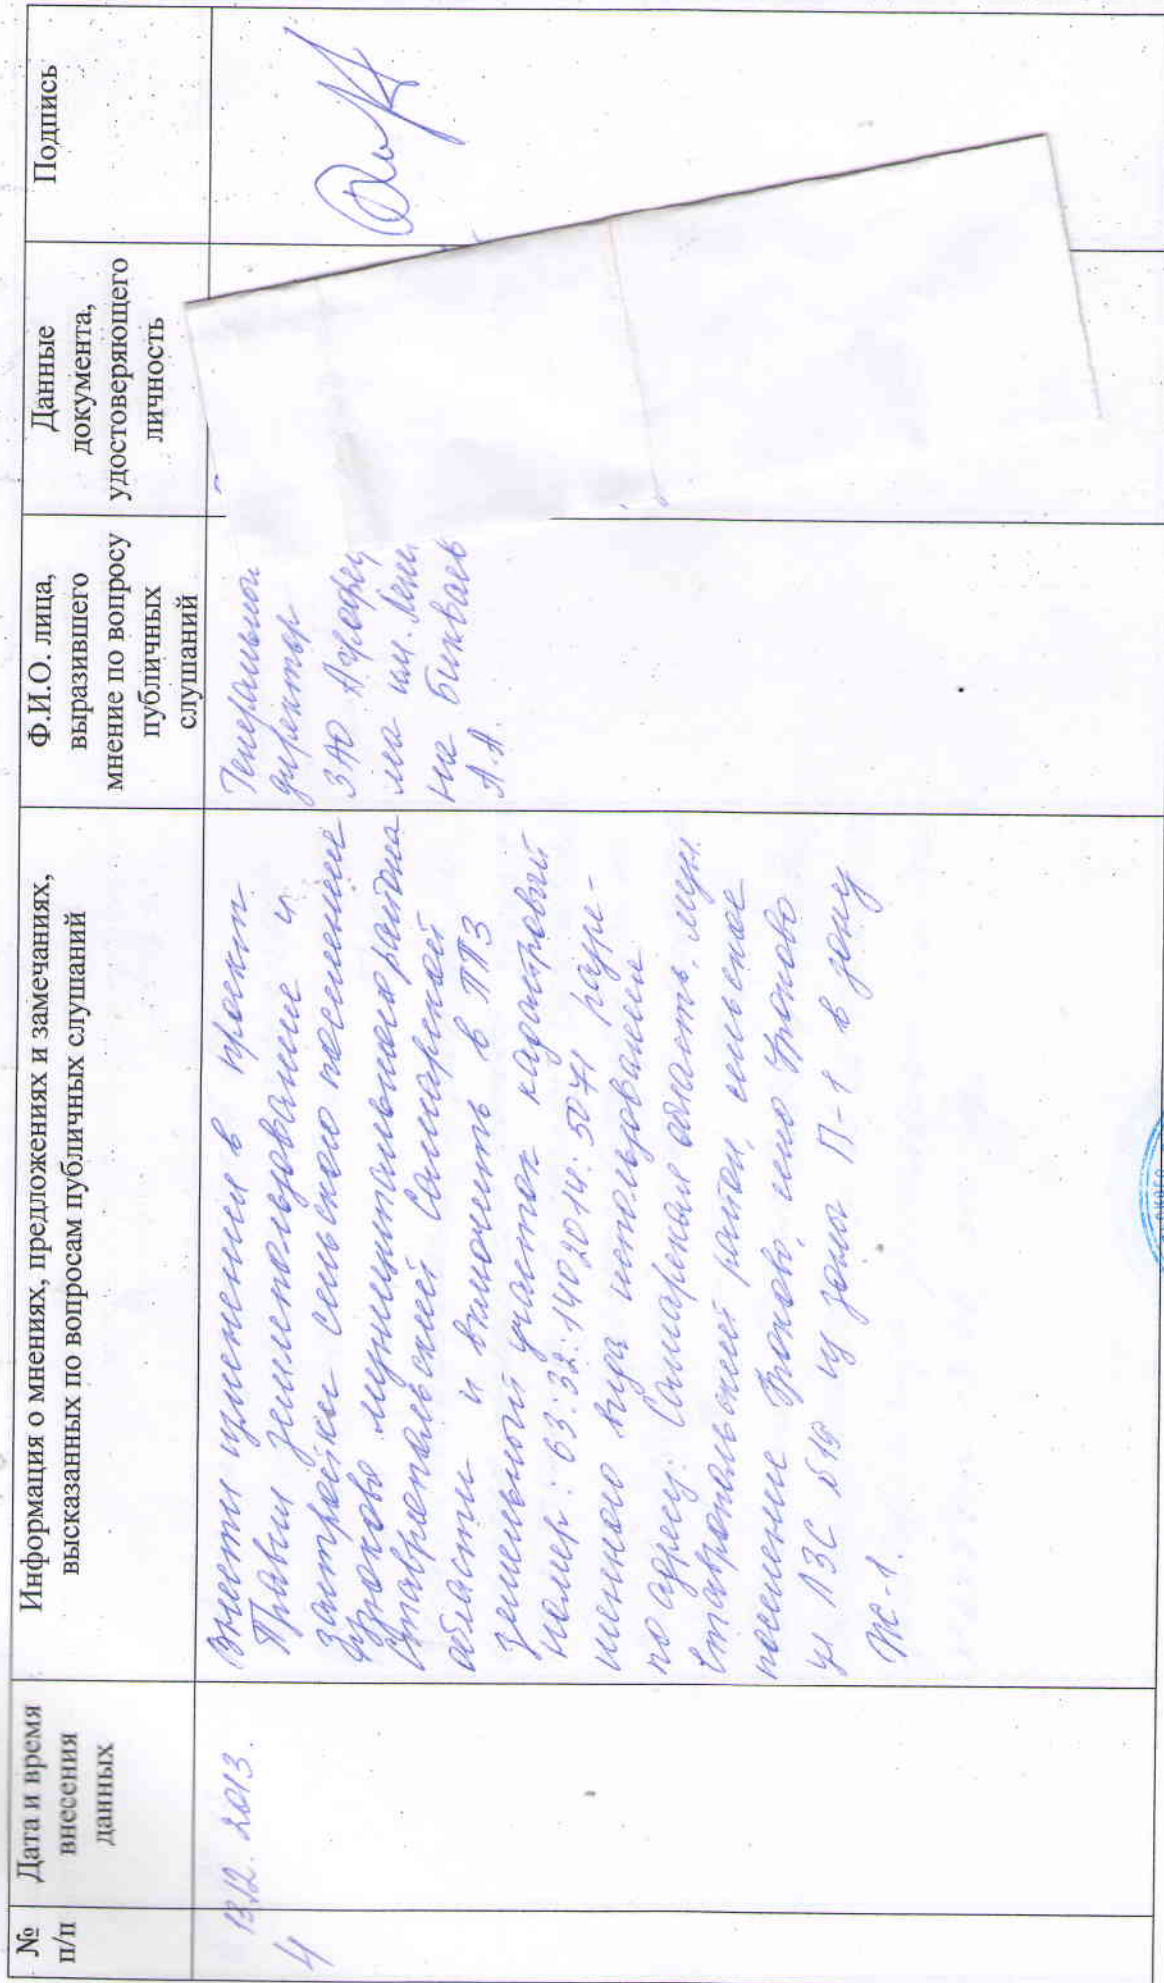 №
п/п
Дата и время
внесения
данных
Информация о мнениях, предложениях и замечаниях,
высказанных по вопросам публичных слушаний
Ф.И.О. лица,
выразившего
мнение по вопросу
публичных
слушаний
Данные
документа,
удостоверяющего
личность
Подпись
4
13.12. 2013.
Внести изменения в проект
Правил землепользования и
застройки сельского поселения
Узюково муниципального района
Ставропольский Самарской
области и включить в ППЗ
земельный участок кадастровый
номер: 63:32:1402014:5071 разре-
шенного вида использования
по адресу: Самарская область, мун.
Ставропольский район, сельское
поселение Узюково, село Узюково
из зоны П-1 в зону
Ж-1.
Генеральный
директор
ЗАО Агрофир
ма им. Лени
на Бикваев
А.А.